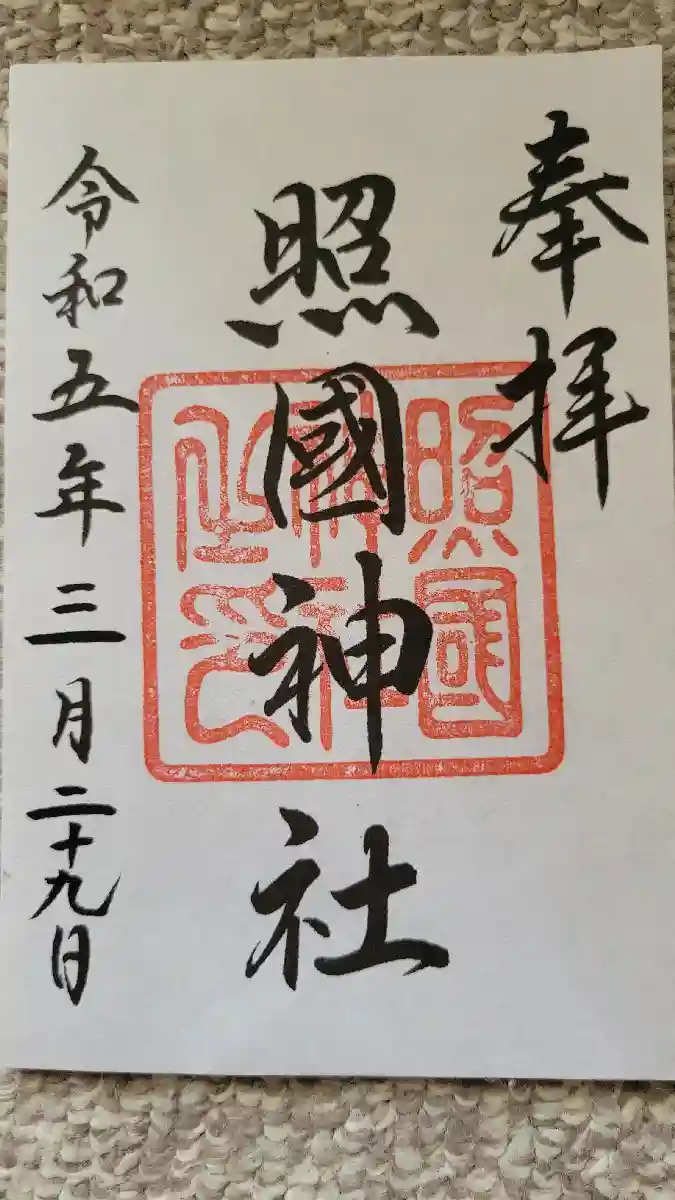 奉拝
照國神社
照國神社之印
令和五年三月二十九日